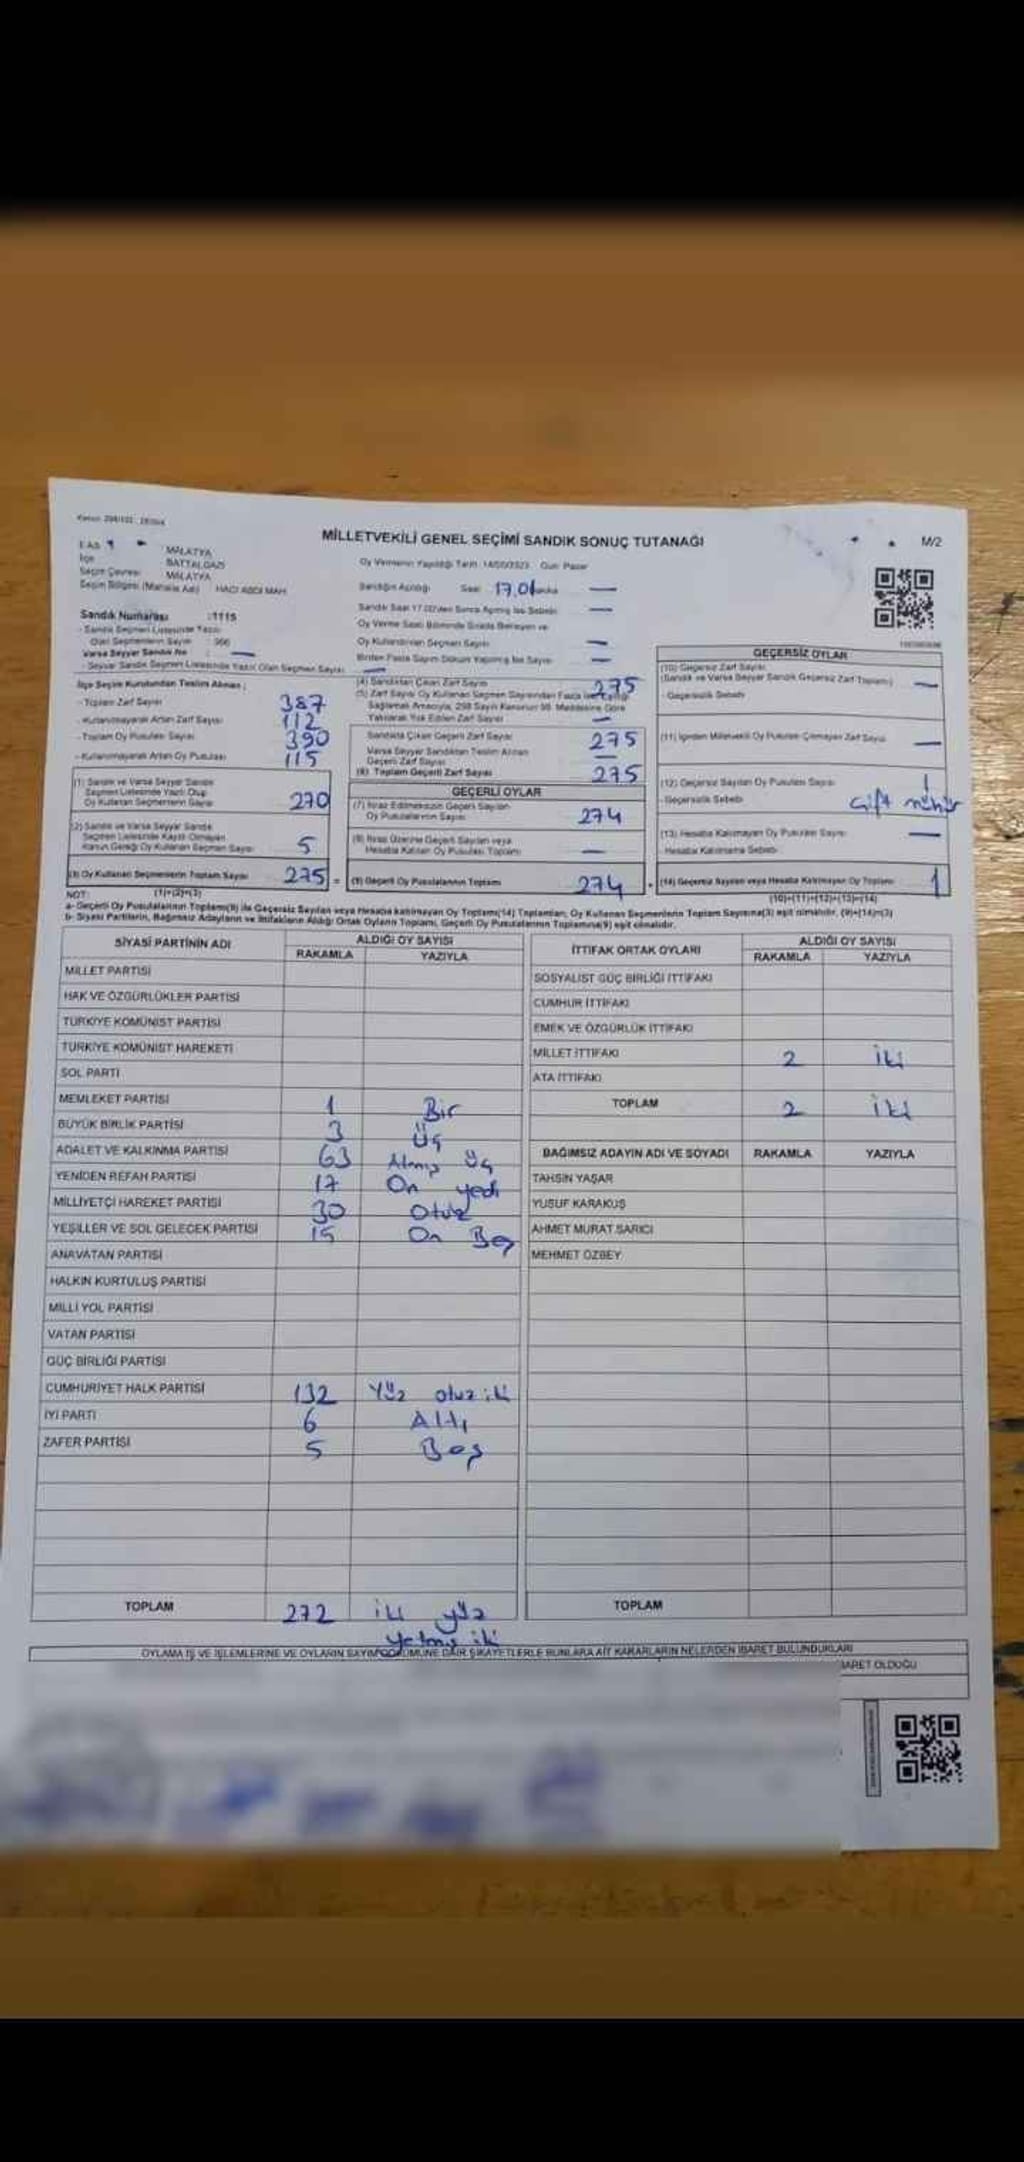 MİLLETVEKİLİ GENEL SEÇİMİ SANDIK SONUÇ TUTANAĞI
M/2
MALATYA
İlçe BATTALGAZİ
Seçim Çevresi MALATYA
Seçim Bölgesi (Mahalle Adı) HACI ABDİ MAH
Oy Vermenin Yapıldığı Tarih 14/05/2023 Gün Pazar
Sandığın Açıldığı Saat 17.01 —
Sandık Numarası :1115
- Sandık Seçmen Listesinde Yazılı
Olan Seçmenlerin Sayısı
Varsa Seyyar Sandık No : —
- Seyyar Sandık Seçmen Listesinde Yazılı Olan Seçmen Sayısı —
Oy Kullandırılan Seçmen Sayısı —
Birden Fazla Sayım Döküm Yapılmış İse Sayısı —
İlçe Seçim Kurulundan Teslim Alınan ;
- Toplam Zarf Sayısı 387
- Kullanılmayarak Artan Zarf Sayısı 112
- Toplam Oy Pusulası Sayısı 390
- Kullanılmayarak Artan Oy Pusulası 115
(1) Sandık ve Varsa Seyyar Sandık
Seçmen Listesinde Yazılı Olup
Oy Kullanan Seçmenlerin Sayısı 270
(2) Sandık ve Varsa Seyyar Sandık
Seçmen Listesinde Kayıtlı Olmayan
Kanun Gereği Oy Kullanan Seçmen Sayısı 5
(3) Oy Kullanan Seçmenlerin Toplam Sayısı 275 =
(4) Sandıktan Çıkan Zarf Sayısı 275
(5) Zarf Sayısı Oy Kullanan Seçmen Sayısından Fazla
Sağlamak Amacıyla, 298 Sayılı Kanunun 98. Maddesine Göre
Yakılarak Yok Edilen Zarf Sayısı —
Sandıkta Çıkan Geçerli Zarf Sayısı 275
Varsa Seyyar Sandıktan Teslim Alınan
Geçerli Zarf Sayısı —
(6) Toplam Geçerli Zarf Sayısı 275
GEÇERLİ OYLAR
(7) İtiraz Edilmeksizin Geçerli Sayılan
Oy Pusulalarının Sayısı 274
(8) İtiraz Üzerine Geçerli Sayılan veya
Hesaba Katılan Oy Pusulası Toplamı —
(9) Geçerli Oy Pusulalarının Toplamı 274 +
GEÇERSİZ OYLAR
(10) Geçersiz Zarf Sayısı
(Sandık ve Varsa Seyyar Sandık Geçersiz Zarf Toplamı) —
- Geçersizlik Sebebi
(11) İçinden Milletvekili Oy Pusulası Çıkmayan Zarf Sayısı —
(12) Geçersiz Sayılan Oy Pusulası Sayısı 1
- Geçersizlik Sebebi Çift mühür
(13) Hesaba Katılmayan Oy Pusulası Sayısı —
Hesaba Katılmama Sebebi
(14) Geçersiz Sayılan veya Hesaba Katılmayan Oy Toplamı 1
NOT: (1)+(2)=(3)
(10)+(11)+(12)+(13)=(14)
a- Geçerli Oy Pusulalarının Toplamı(9) ile Geçersiz Sayılan veya Hesaba katılmayan Oy Toplamı(14) Toplamları, Oy Kullanan Seçmenlerin Toplam Sayısına(3) eşit olmalıdır. (9)+(14)=(3)
b- Siyasi Partilerin, Bağımsız Adayların ve İttifakların Aldığı Ortak Oyların Toplamı, Geçerli Oy Pusulalarının Toplamına(9) eşit olmalıdır.
SİYASİ PARTİNİN ADI ALDIĞI OY SAYISI
RAKAMLA YAZIYLA
MİLLET PARTİSİ
HAK VE ÖZGÜRLÜKLER PARTİSİ
TÜRKİYE KOMÜNİST PARTİSİ
TÜRKİYE KOMÜNİST HAREKETİ
SOL PARTİ
MEMLEKET PARTİSİ 1 Bir
BÜYÜK BİRLİK PARTİSİ 3 Üç
ADALET VE KALKINMA PARTİSİ 63 Atmış Üç
YENİDEN REFAH PARTİSİ 17 On yedi
MİLLİYETÇİ HAREKET PARTİSİ 30 Otuz
YEŞİLLER VE SOL GELECEK PARTİSİ 15 On Beş
ANAVATAN PARTİSİ
HALKIN KURTULUŞ PARTİSİ
MİLLİ YOL PARTİSİ
VATAN PARTİSİ
GÜÇ BİRLİĞİ PARTİSİ
CUMHURİYET HALK PARTİSİ 132 Yüz otuz iki
İYİ PARTİ 6 Altı
ZAFER PARTİSİ 5 Beş
TOPLAM 272 iki yüz
yetmiş iki
İTTİFAK ORTAK OYLARI ALDIĞI OY SAYISI
RAKAMLA YAZIYLA
SOSYALİST GÜÇ BİRLİĞİ İTTİFAKI
CUMHUR İTTİFAKI
EMEK VE ÖZGÜRLÜK İTTİFAKI
MİLLET İTTİFAKI 2 iki
ATA İTTİFAKI
TOPLAM 2 iki
BAĞIMSIZ ADAYIN ADI VE SOYADI RAKAMLA YAZIYLA
TAHSİN YAŞAR
YUSUF KARAKUŞ
AHMET MURAT SARICI
MEHMET ÖZBEY
TOPLAM
OYLAMA İŞ VE İŞLEMLERİNE VE OYLARIN SAYIM DÖKÜMÜNE DAİR ŞİKAYETLERLE BUNLARA AİT KARARLARIN NELERDEN İBARET BULUNDUKLARI
BARET OLDUĞU